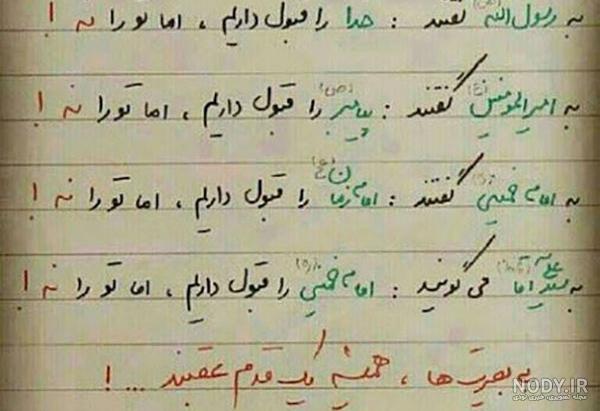 به رسول الله (ص) گفتند : خدا را قبول داریم ، اما تو را نه !
به امیرالمومنین (ع) گفتند : پیامبر (ص) را قبول داریم ، اما تو را نه !
به امام خمینی (ره) گفتند : امام زمان (عج) را قبول داریم ، اما تو را نه !
به سید علی آقا می گویند : امام خمینی (ره) را قبول داریم ، اما تو را نه !
بی بصیرت ها ، همیشه یک قدم عقبند ... !
NODY.IR
مجله تصویری، خبری نودی